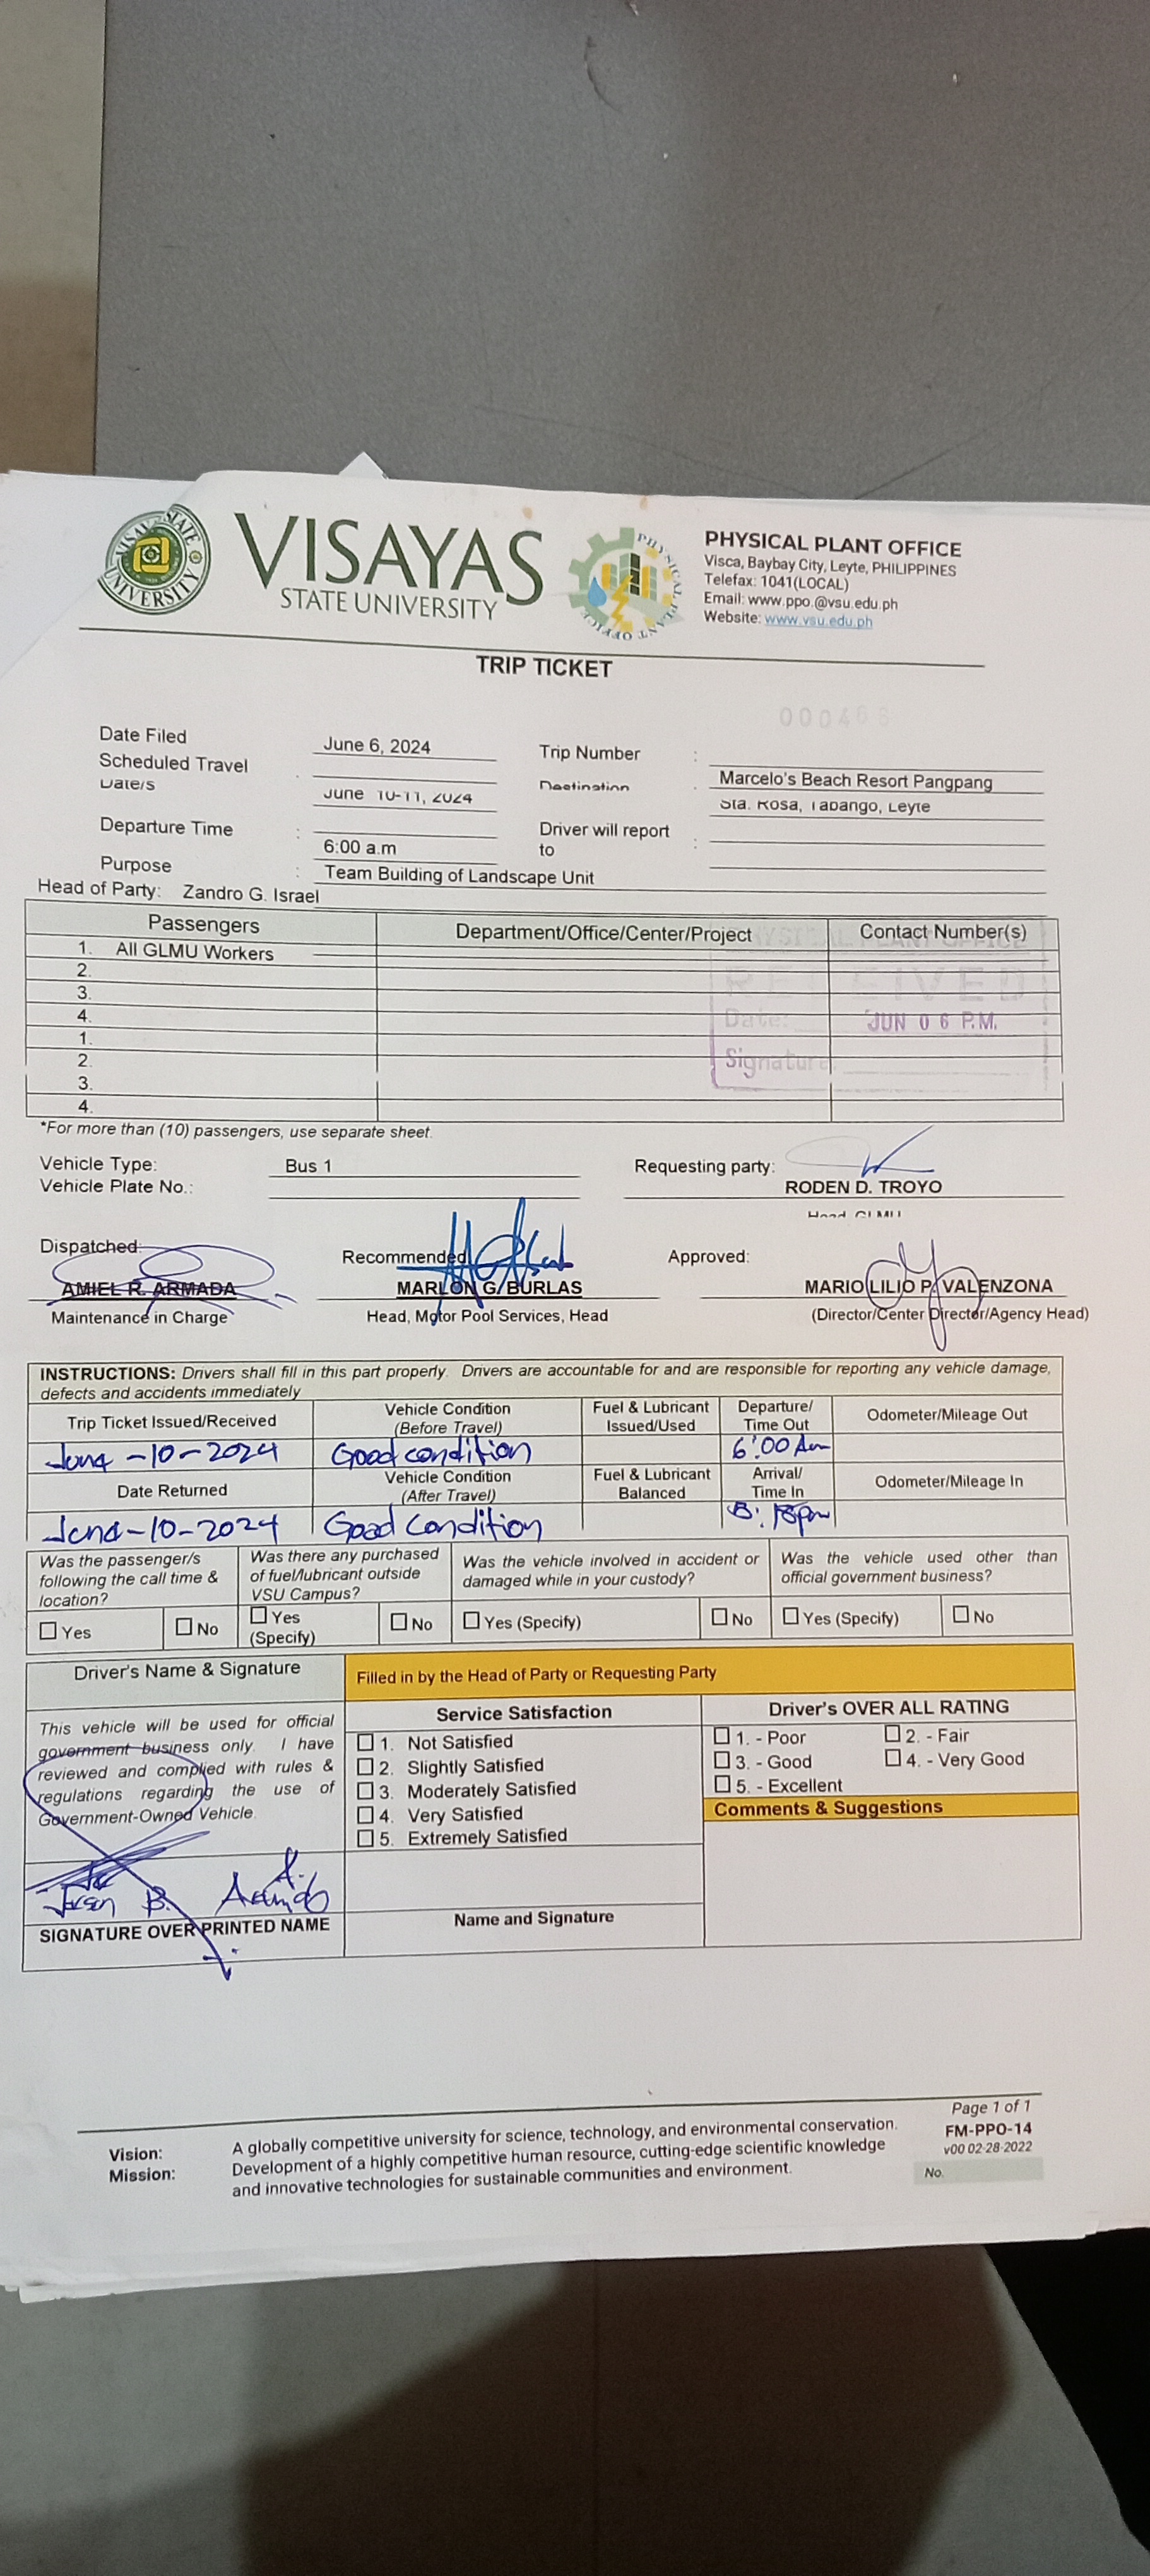 VISAYAS
STATE UNIVERSITY
PHYSICAL PLANT OFFICE
Visca, Baybay City, Leyte, PHILIPPINES
Telefax: 1041(LOCAL)
Email: www.ppo.@vsu.edu.ph
Website: www.vsu.edu.ph
TRIP TICKET
Date Filed June 6, 2024 Trip Number :
Scheduled Travel Date/s : June 10-11, 2024 Destination : Marcelo's Beach Resort Pangpang
Sta. Rosa, Tabango, Leyte
Departure Time : 6:00 a.m Driver will report to :
Purpose : Team Building of Landscape Unit
Head of Party: Zandro G. Israel
Passengers Department/Office/Center/Project Contact Number(s)
1. All GLMU Workers
2.
3.
4.
1.
2.
3.
4.
RECEIVED
Date: JUN 06 P.M.
Signature
*For more than (10) passengers, use separate sheet.
Vehicle Type: Bus 1 Requesting party:
Vehicle Plate No.: RODEN D. TROYO
Head, GLMU
Dispatched: Recommended Approved:
AMIEL R. ARMADA MARLON G. BURLAS MARIO LILIO P. VALENZONA
Maintenance in Charge Head, Motor Pool Services, Head (Director/Center Director/Agency Head)
INSTRUCTIONS: Drivers shall fill in this part properly. Drivers are accountable for and are responsible for reporting any vehicle damage,
defects and accidents immediately
Trip Ticket Issued/Received Vehicle Condition (Before Travel) Fuel & Lubricant Issued/Used Departure/ Time Out Odometer/Mileage Out
June -10-2024 Good condition 6:00 Am
Date Returned Vehicle Condition (After Travel) Fuel & Lubricant Balanced Arrival/ Time In Odometer/Mileage In
June-10-2024 Good Condition
Was the passenger/s following the call time & location? Was there any purchased of fuel/lubricant outside VSU Campus? Was the vehicle involved in accident or damaged while in your custody? Was the vehicle used other than official government business?
Yes No Yes (Specify) No Yes (Specify) No Yes (Specify) No
Driver's Name & Signature Filled in by the Head of Party or Requesting Party
Service Satisfaction Driver's OVER ALL RATING
This vehicle will be used for official
government business only. I have
reviewed and complied with rules &
regulations regarding the use of
Government-Owned Vehicle.
1. Not Satisfied
2. Slightly Satisfied
3. Moderately Satisfied
4. Very Satisfied
5. Extremely Satisfied
1. - Poor 2. - Fair
3. - Good 4. - Very Good
5. - Excellent
Comments & Suggestions
SIGNATURE OVER PRINTED NAME Name and Signature
Page 1 of 1
FM-PPO-14
v00 02-28-2022
No.
Vision: A globally competitive university for science, technology, and environmental conservation.
Mission: Development of a highly competitive human resource, cutting-edge scientific knowledge
and innovative technologies for sustainable communities and environment.